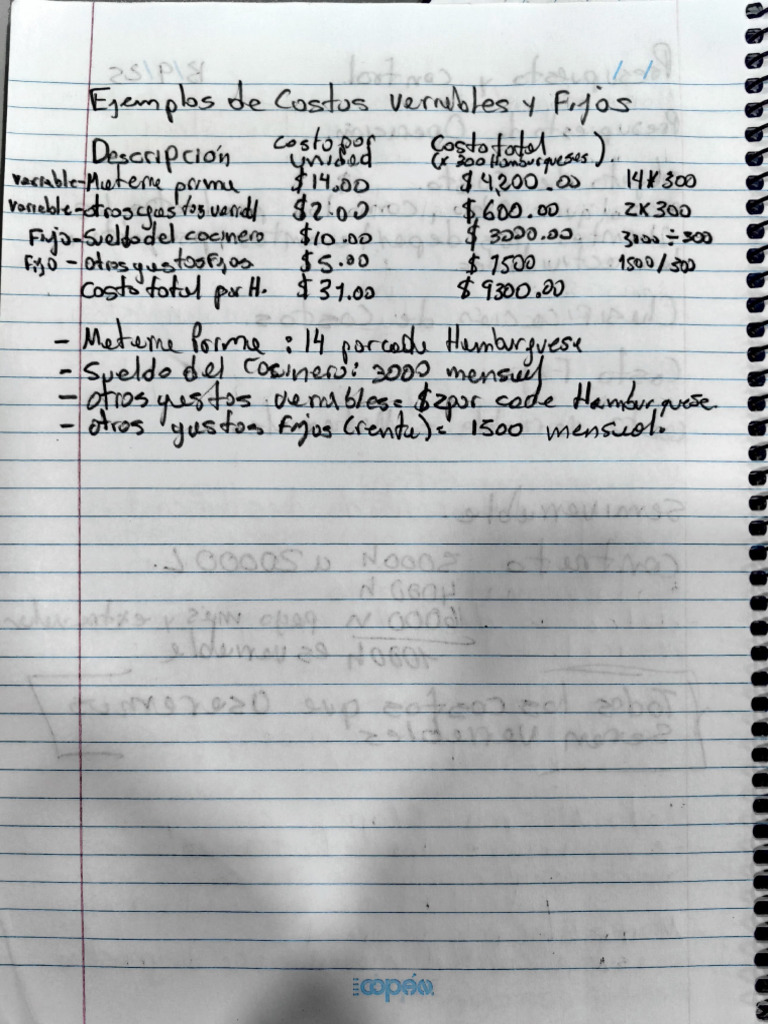 Ejemplos de Costos variables y Fijos
Descripción costo por unidad Costo total (x 300 Hamburgueses).
variable - Materia prima $14.00 $4,200.00 14 x 300
variable - otros gastos variabl $2.00 $600.00 2 x 300
Fijo - Sueldo del cocinero $10.00 $3000.00 3000 ÷ 300
Fijo - otros gastos Fijos $5.00 $1500 1500/300
Costo total por H. $31.00 $9300.00
- Materia Prima : 14 por cada Hamburguesa
- Sueldo del Cosinero: 3000 mensual
- otros gastos variables = $2 por cada Hamburguesa.
- otros gastos Fijos (renta) = 1500 mensual.
copán